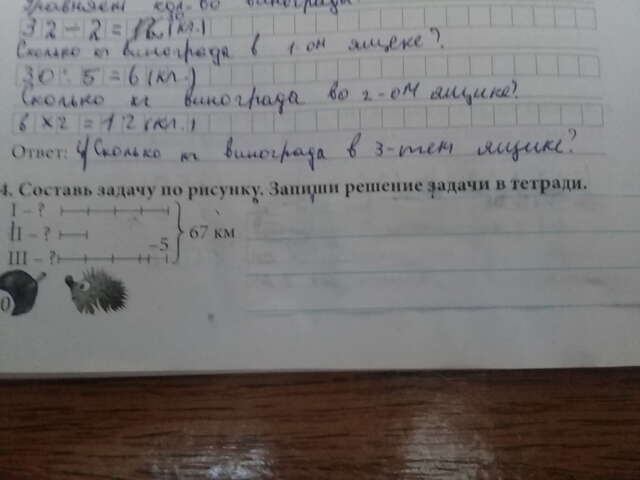 кол-во
32-2=
Сколько кг винограда в 1-ом ящике?
30:5=6(кг.)
Сколько кг винограда во 2-ом ящике?
6×2=12(кг.)
Ответ: Сколько кг винограда в 3-тем ящике?
4. Составь задачу по рисунку. Запиши решение задачи в тетради.
I – ?
II – ?
67 км
III – ?
–5